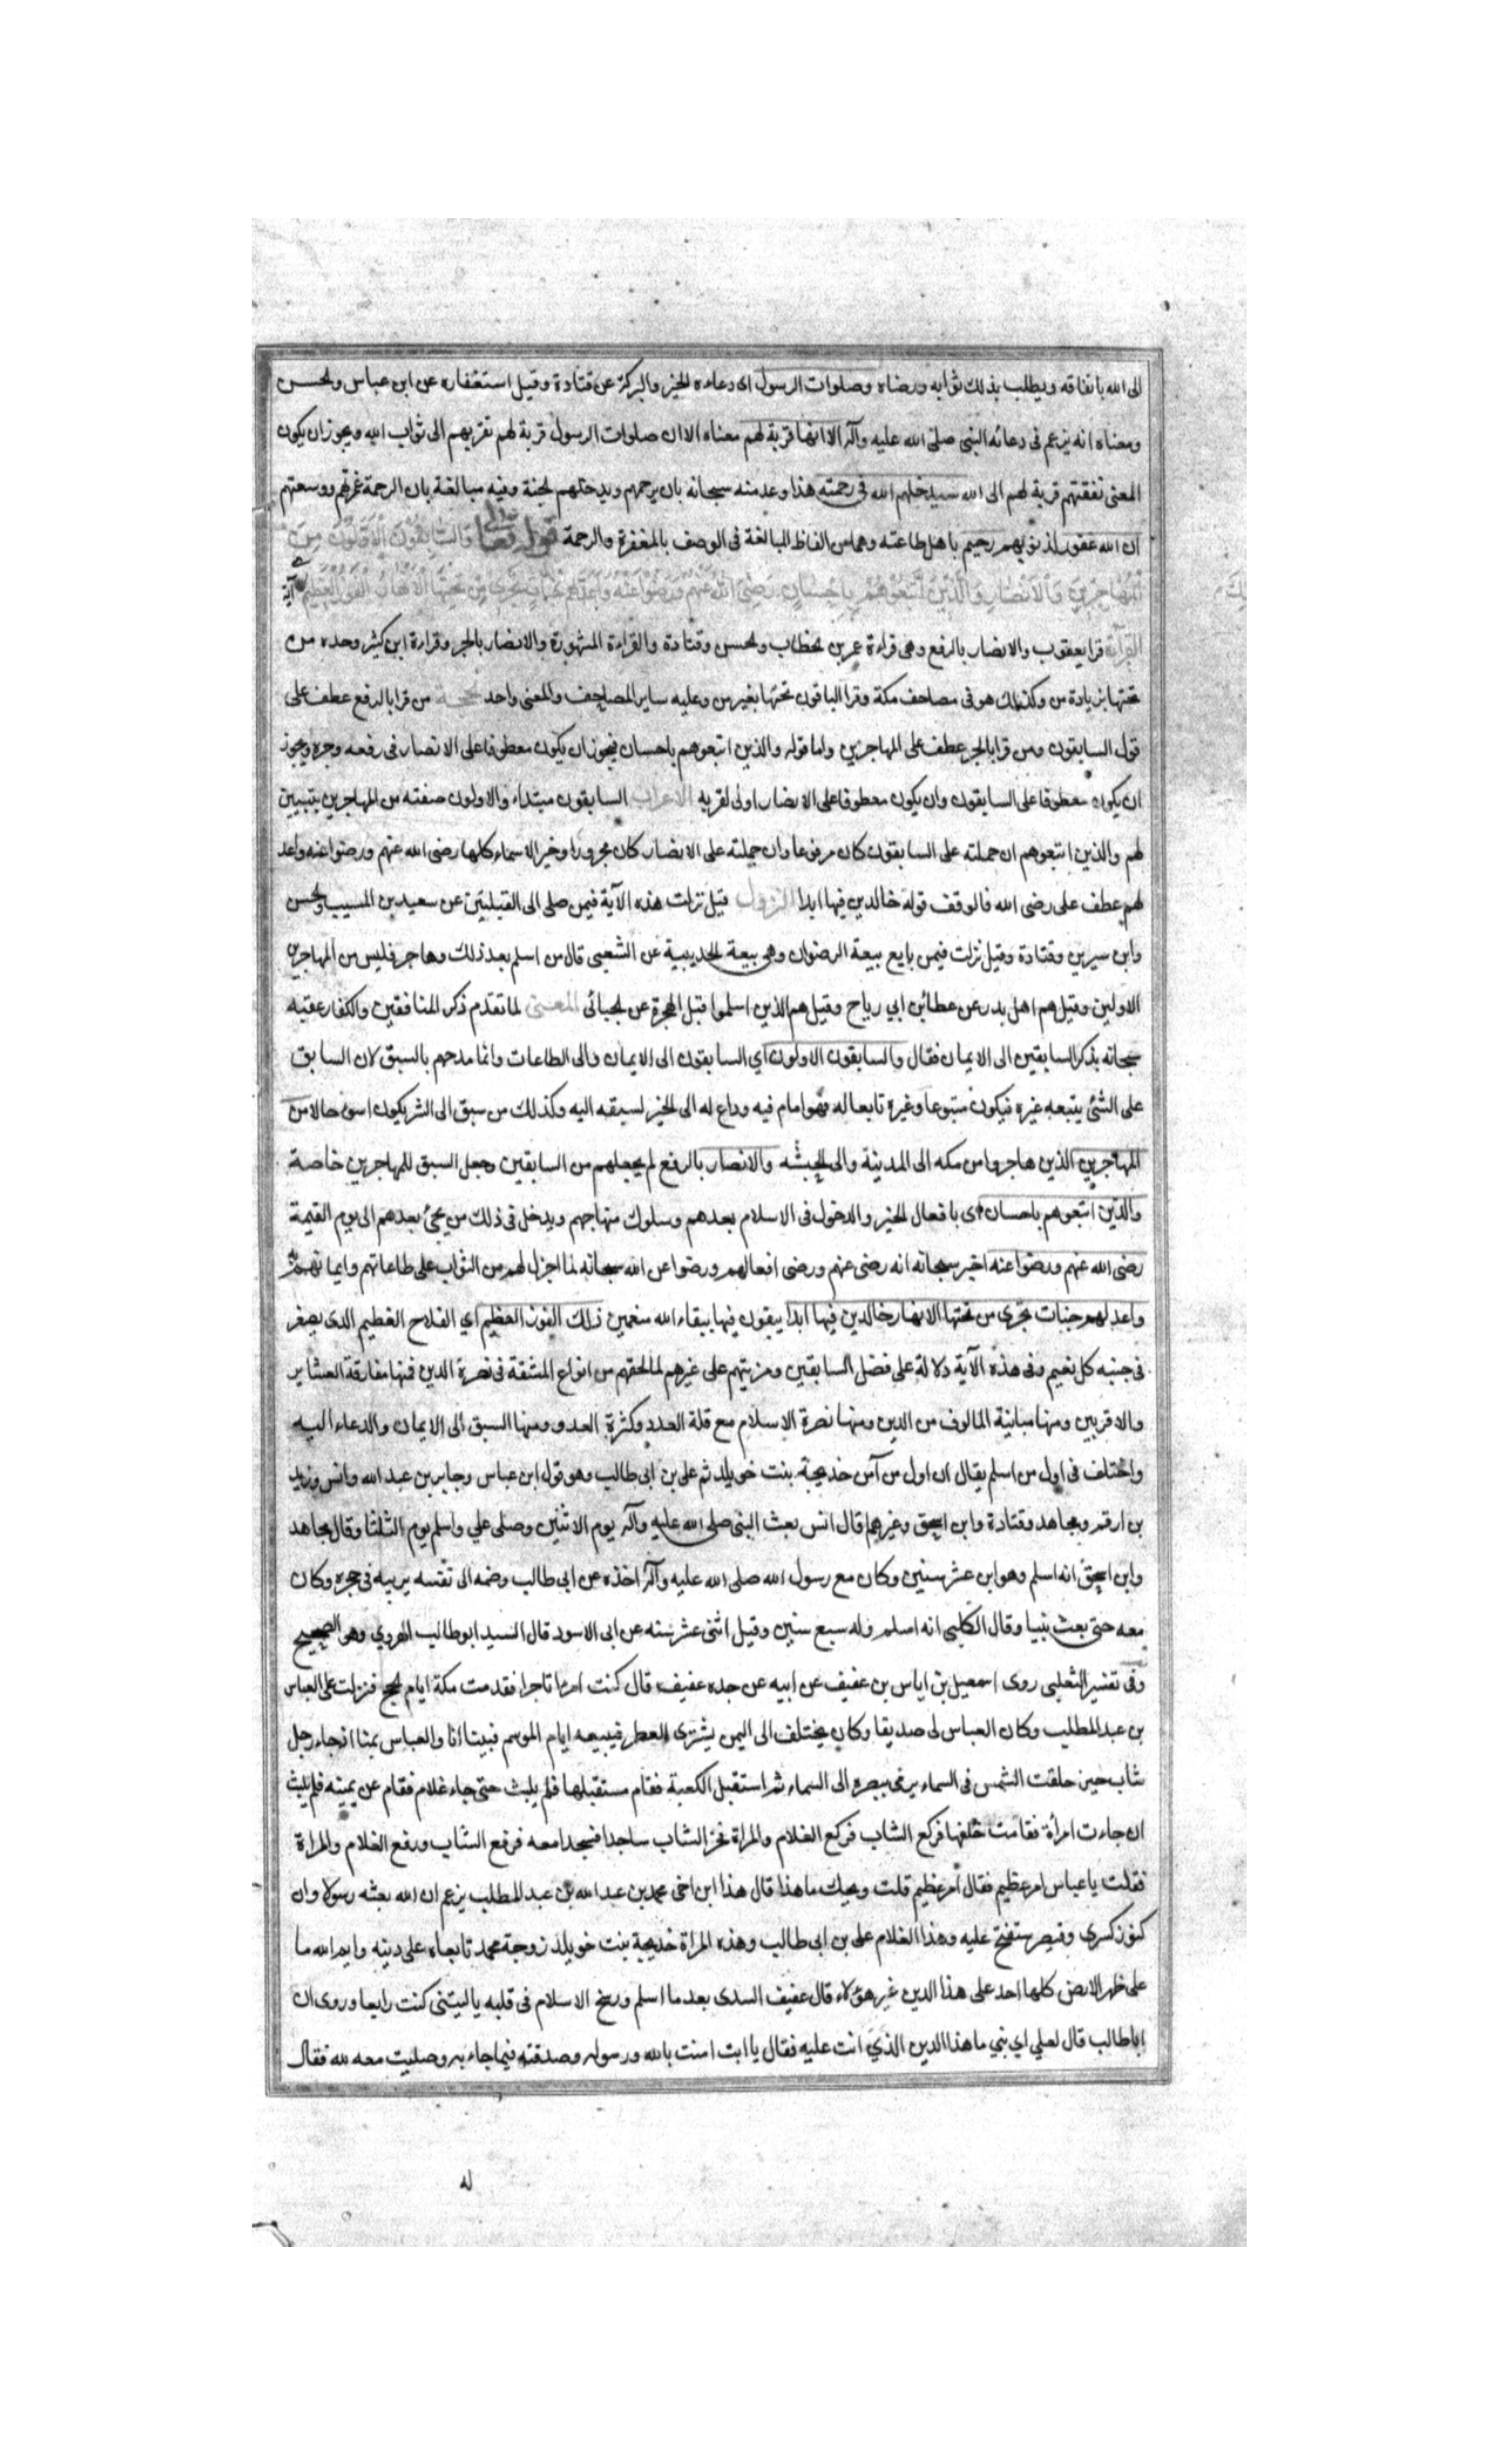 الى الله بانفاقه ويطلب بذلك ثوابه ورضاه وصلوات الرسول اى دعاءه الخير والبركة عن قتادة وقيل استغفاره عن ابن عباس والحسن
ومعناه انه يرغم فى دعائه النبى صلى الله عليه وآله الا انها قربة لهم معناه الا ان صلوات الرسول قربة لهم تقربهم الى ثواب الله ويجوز ان يكون
المعنى نفقتهم قربة لهم الى الله سيدخلهم الله فى رحمته هذا وعد منه سبحانه بان يرحمهم ويدخلهم الجنة وفيه مبالغة بان الرحمة غمرتهم ووسعتهم
ان الله غفور لذنوبهم رحيم باهل طاعته وهما من الفاظ المبالغة فى الوصف بالمغفرة والرحمة قوله تعالى والسابقون الاولون من
المهاجرين والانصار والذين اتبعوهم باحسان رضى الله عنهم ورضوا عنه واعد لهم جنات تجرى من تحتها الانهار الفوز العظيم آية
القراءة قرا يعقوب والانصار بالرفع وهى قراءة عمر بن الخطاب والحسن وقتادة والقراءة المشهورة والانصار بالجر وقراءة ابن كثير وحده من
تحتها بزيادة من وكذلك هو فى مصاحف مكة وقرا الباقون تحتها بغير من وعليه ساير المصاحف والمعنى واحد الحجة من قرا بالرفع عطف على
قول السابقون ومن قرا بالجر عطف على المهاجرين واما قوله والذين اتبعوهم باحسان فيجوز ان يكون معطوفا على الانصار فى رفعه وجره ويجوز
ان يكون معطوفا على السابقون وان يكون معطوفا على الانصار اولى لقربه الاعراب السابقون مبتداء والاولون صفته من المهاجرين يتبيين
لهم والذين اتبعوهم ان حملته على السابقون كان مرفوعا وان حملته على الانصار كان مجرورا وخبر الاسماء كلها رضى الله عنهم ورضوا عنه واعد
لهم عطف على رضى الله فالوقف قوله خالدين فيها ابدا النزول قيل نزلت هذه الآية فيمن صلى الى القبلتين عن سعيد بن المسيب والحسن
وابن سيرين وقتادة وقيل نزلت فيمن بايع بيعة الرضوان وهى بيعة الحديبية عن الشعبى قال من اسلم بعد ذلك وهاجر فليس من المهاجرين
الاولين وقيل هم اهل بدر عن عطائبن ابي رباح وقيل هم الذين اسلموا قبل الهجرة عن الجبائى المعنى لما تقدم ذكر المنافقين والكفار عقبه
سبحانه بذكر السابقين الى الايمان فقال والسابقون الاولون اي السابقون الى الايمان والى الطاعات وانما مدحهم بالسبق لان السابق
على الشئ يتبعه غيره فيكون متبوعا وغيره تابعا له فهو امام فيه وداع له الى الخير لسبقه اليه وكذلك من سبق الى الشر يكون اسوء حالا من
المهاجرين الذين هاجروا من مكه الى المدينة والى الحبشه والانصار بالرفع لم يجعلهم من السابقين وجعل السبق للمهاجرين خاصة
والذين اتبعوهم باحسان اى بافعال الخير والدخول فى الاسلام بعدهم وسلوك منهاجهم ويدخل فى ذلك من يجئ بعدهم الى يوم القيمة
رضى الله عنهم ورضوا عنه اخبر سبحانه انه رضى عنهم ورضى افعالهم ورضوا عن الله سبحانه لما اجزل لهم من الثواب على طاعاتهم وايمانهم
واعد لهم جنات تجرى من تحتها الانهار خالدين فيها ابدا يبقون فيها ببقاء الله منعمين ذلك الفوز العظيم اي الفلاح العظيم الذى يصغر
فى جنبه كل نعيم وفى هذه الآية دلالة على فضل السابقين ومزيتهم على غيرهم لما لحقهم من انواع المشقة فى نصرة الدين فمنها مفارقة العشاير
والاقربين ومنها مباينة المالوف من الدين ومنها نصرة الاسلام مع قلة العدد وكثرة العدو ومنها السبق الى الايمان والدعاء اليه
واختلف فى اول من اسلم يقال ان اول من آمن خديجة بنت خويلد ثم على بن ابى طالب وهو قول ابن عباس وجابر بن عبد الله وانس وزيد
بن ارقم ومجاهد وقتادة وابن اسحق وغيرهم قال انس بعث النبى صلى الله عليه وآله يوم الاثنين وصلى علي واسلم يوم الثلثا وقال مجاهد
وابن اسحق انه اسلم وهو ابن عشر سنين وكان مع رسول الله صلى الله عليه وآله اخذه عن ابى طالب وضمه الى نفسه يربيه فى حجره وكان
معه حتى بعث نبيا وقال الكلبى انه اسلم وله سبع سنين وقيل اثنى عشر سنه عن ابى الاسود قال السيد ابو طالب الهروي وهو الصحيح
وفى تفسير الثعلبى روى اسمعيل بن اياس بن عفيف عن ابيه عن جده عفيف قال كنت امرءا تاجرا فقدمت مكة ايام الحج فنزلت على العباس
بن عبد المطلب وكان العباس لى صديقا وكان يختلف الى اليمن يشترى العطر فيبيعه ايام الموسم فبينا انا والعباس بمنا اذ جاء رجل
شاب حين حلقت الشمس فى السماء يرمى ببصره الى السماء ثم استقبل الكعبة فقام مستقبلها فلم يلبث حتى جاء غلام فقام عن يمينه فلم يلبث
ان جاءت امرأة فقامت خلفها فركع الشاب فركع الغلام والمراة فخر الشاب ساجدا فسجدا معه فرفع الشاب ورفع الغلام والمراة
فقلت يا عباس امر عظيم فقال امر عظيم قلت ويحك ما هذا قال هذا ابن اخى محمد بن عبد الله بن عبد المطلب يزعم ان الله بعثه رسولا وان
كنوز كسرى وقيصر ستفتح عليه وهذا الغلام على بن ابى طالب وهذه المراة خديجة بنت خويلد زوجة محمد تابعاه على دينه وايم الله ما
على ظهر الارض كلها احد على هذا الدين غير هؤلاء قال عفيف السدى بعد ما اسلم ورسخ الاسلام فى قلبه يا ليتنى كنت رابعا وروى ان
ابا طالب قال لعلي اي بني ما هذا الدين الذي انت عليه فقال يا ابت امنت بالله ورسوله وصدقته فيما جاء به وصليت معه لله فقال
له